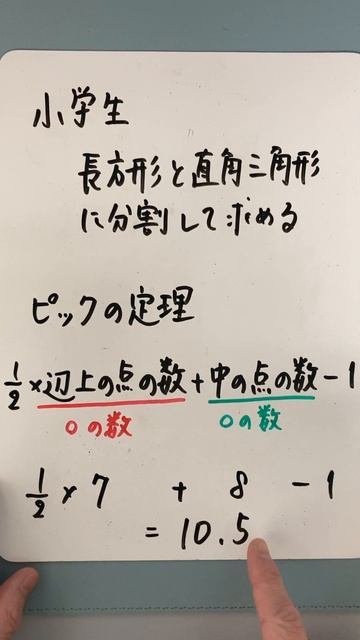 小学生
長方形と直角三角形
に分割して求める
ピックの定理
1/2×辺上の点の数+中の点の数-1
○の数 ○の数
1/2×7 + 8 -1
= 10.5